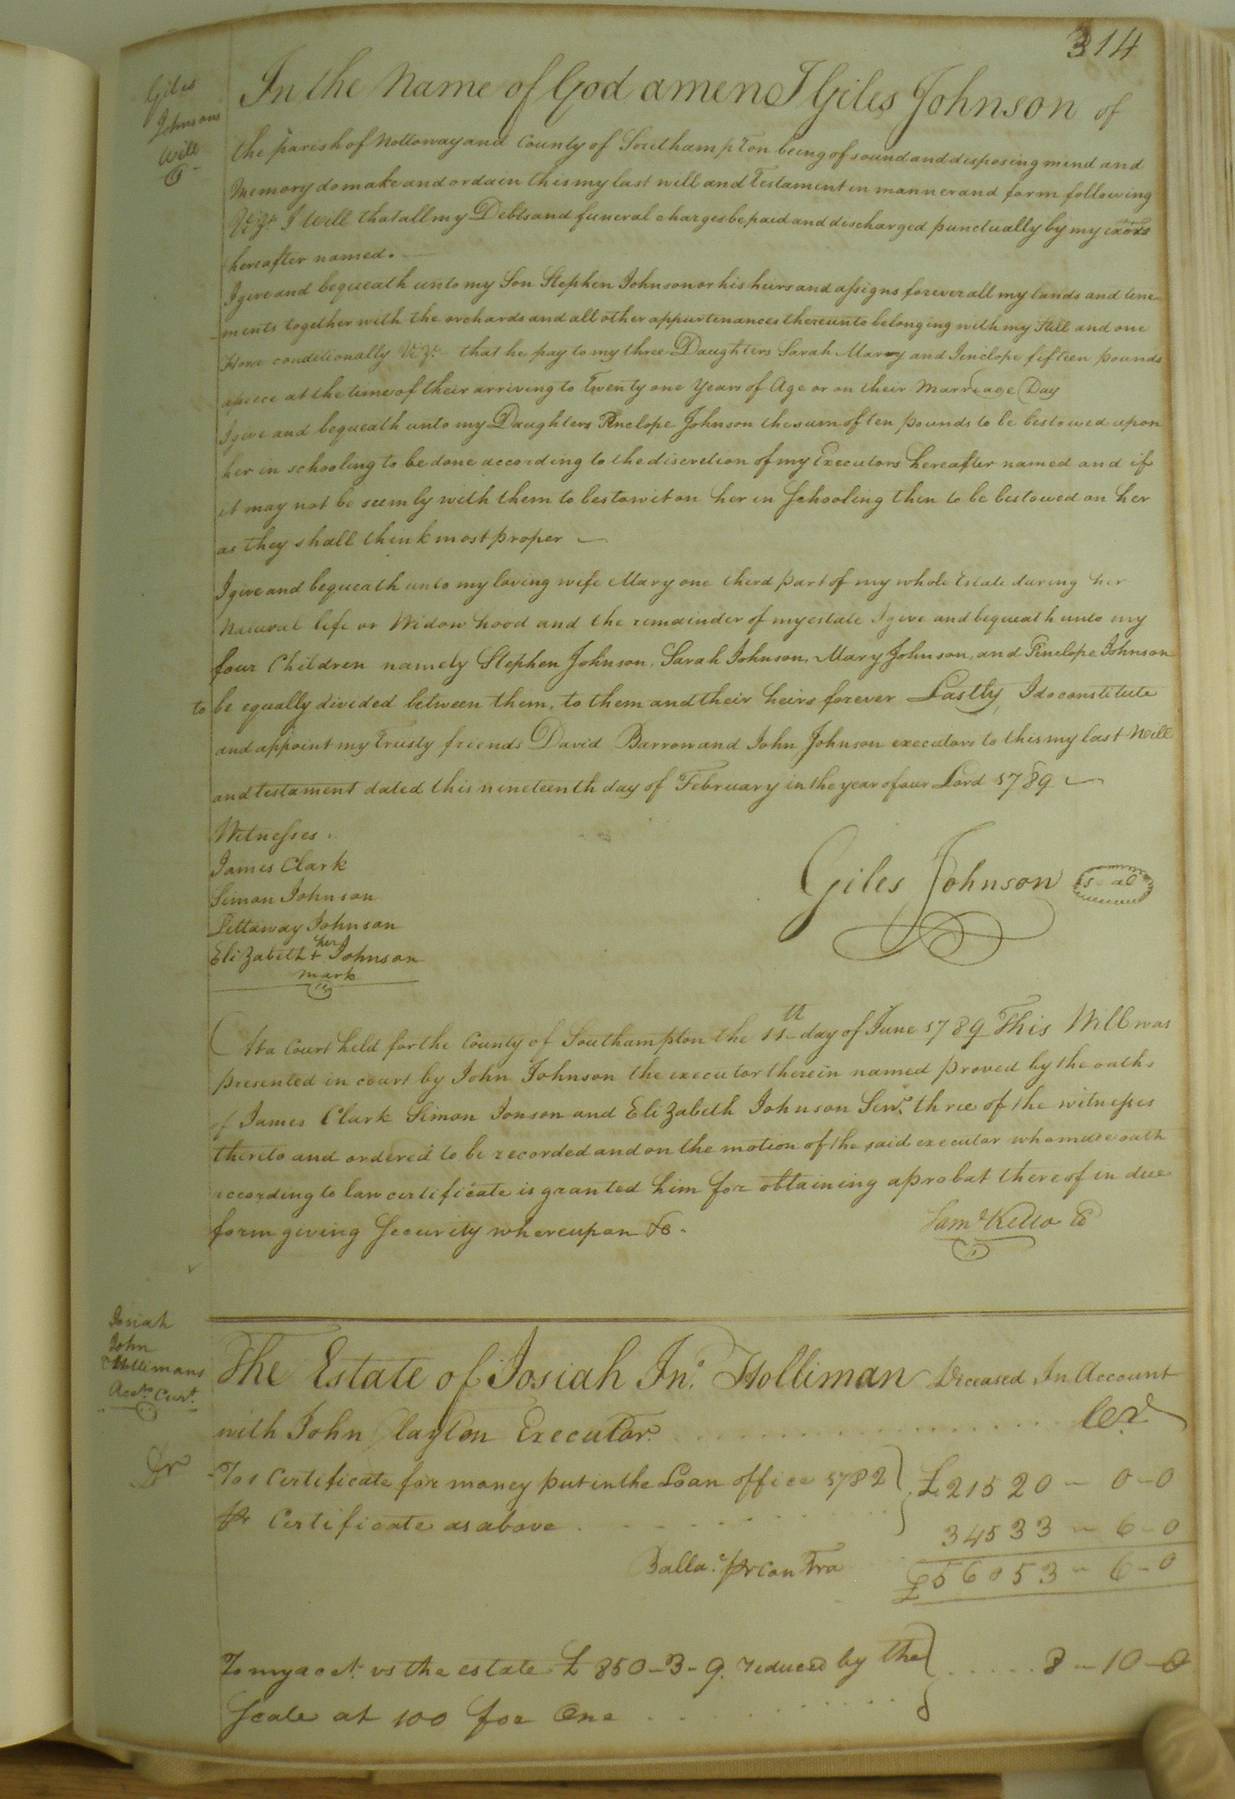 314
Giles
Johnsons
Will
In the Name of God amen I Giles Johnson of
the parish of Nottoway and County of Southampton being of sound and disposing mind and
Memory do make and ordain this my last will and Testament in manner and form following
Vizt. I Will that all my Debts and funeral charges be paid and discharged punctually by my exors
hereafter named.
I give and bequeath unto my Son Stephen Johnson or his heirs and assigns forever all my lands and tene
ments together with the orchards and all other appurtenances thereunto belonging with my Still and one
conditionally Vizt. that he pay to my three Daughters Sarah Marey and Penelope fifteen pounds
apiece at the time of their arriving to Twenty one Years of Age or on their Marreage Day
I give and bequeath unto my Daughters Penelope Johnson the sum of ten pounds to be bestowed upon
her in schooling to be done according to the discretion of my Executors hereafter named and if
it may not be seemly with them to bestow it on her in Schooling then to be bestowed on her
as they shall think most proper
I give and bequeath unto my loving wife Mary one third part of my whole Estate during her
Natural life or Widow hood and the remainder of my estate I give and bequeath unto my
four Children namely Stephen Johnson, Sarah Johnson, Mary Johnson, and Penelope Johnson
to be equally divided between them, to them and their heirs forever Lastly, I do constitute
and appoint my Trusty friends David Barrow and John Johnson executors to this my last Will
and testament dated this nineteenth day of February in the year of our Lord 1789
Witnesses.
James Clark
Simon Johnson
Pettaway Johnson
Elizabeth + her Johnson
mark
Giles Johnson seal
At a Court held for the County of Southampton the 11th day of June 1789 This Will was
presented in court by John Johnson the executor therein named proved by the oaths
of James Clark Simon Jonson and Elizabeth Johnson Senr. three of the witnesses
thereto and ordered to be recorded and on the motion of the said executor who made oath
according to law certificate is granted him for obtaining a probat thereof in due
form giving Security whereupon &c.
Saml Kello CC
Josiah
John
Hollimans
Acct. Curt.
The Estate of Josiah Jno. Holliman Deceased In Account
with John Clayton Executor Cr.
Dr
To 1 Certificate for money put in the Loan office 1782 £21520-0-0
Pr Certificate as above 34533-6-0
Balla. Pr Contra £56053-6-0
To my acct. vs the estate £850-3-9. reduced by the 8-10-0
Scale at 100 for One